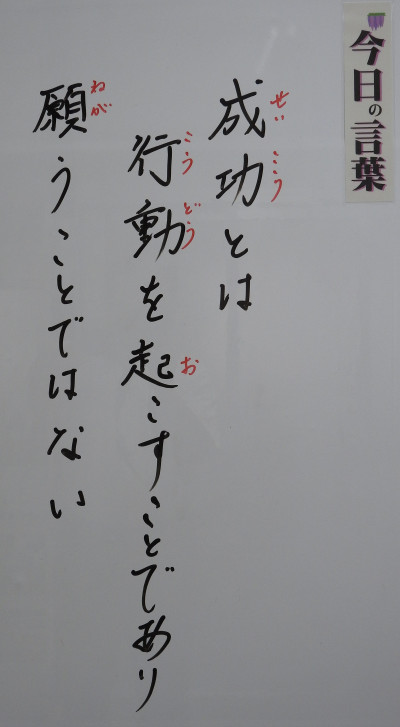 今日の言葉
成功とは
せいこう
行動を起こすことであり
こうどう お
願うことではない
ねが